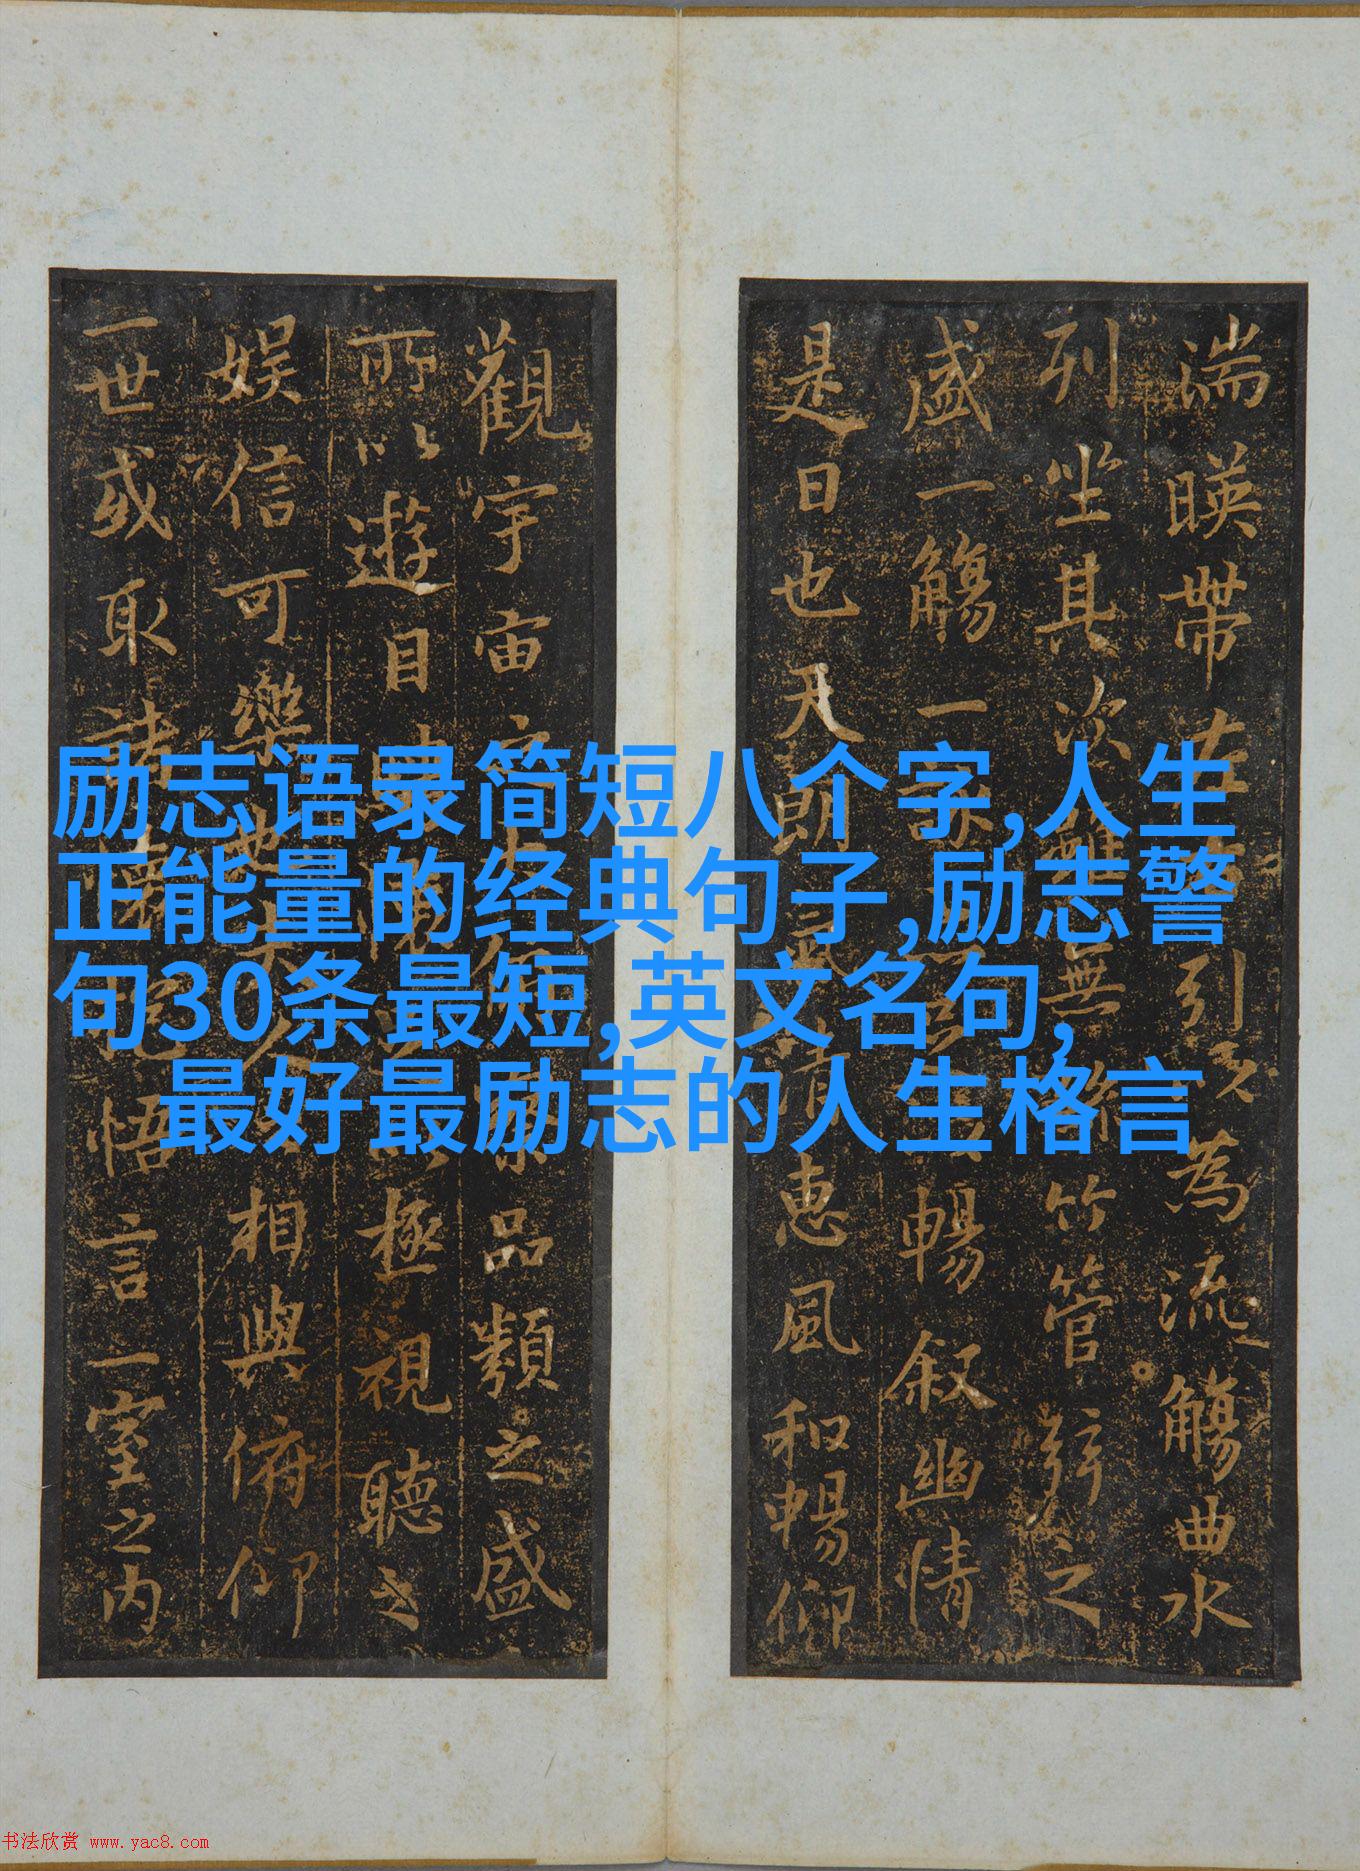 湍暎帶左引以為流觴曲水
列坐其次雖無竹管弦之
盛一觴一詠暢叙幽情
是日也天朗清惠風和暢仰
觀宇宙之品類之盛
所以遊目極視聽之
娛信可樂也夫人相與俯仰
一世或取諸悟言一室之內
励志语录简短八个字,人生
正能量的经典句子,励志警
句30条最短,英文名句,
最好最励志的人生格言
书法欣赏 www.yac8.com